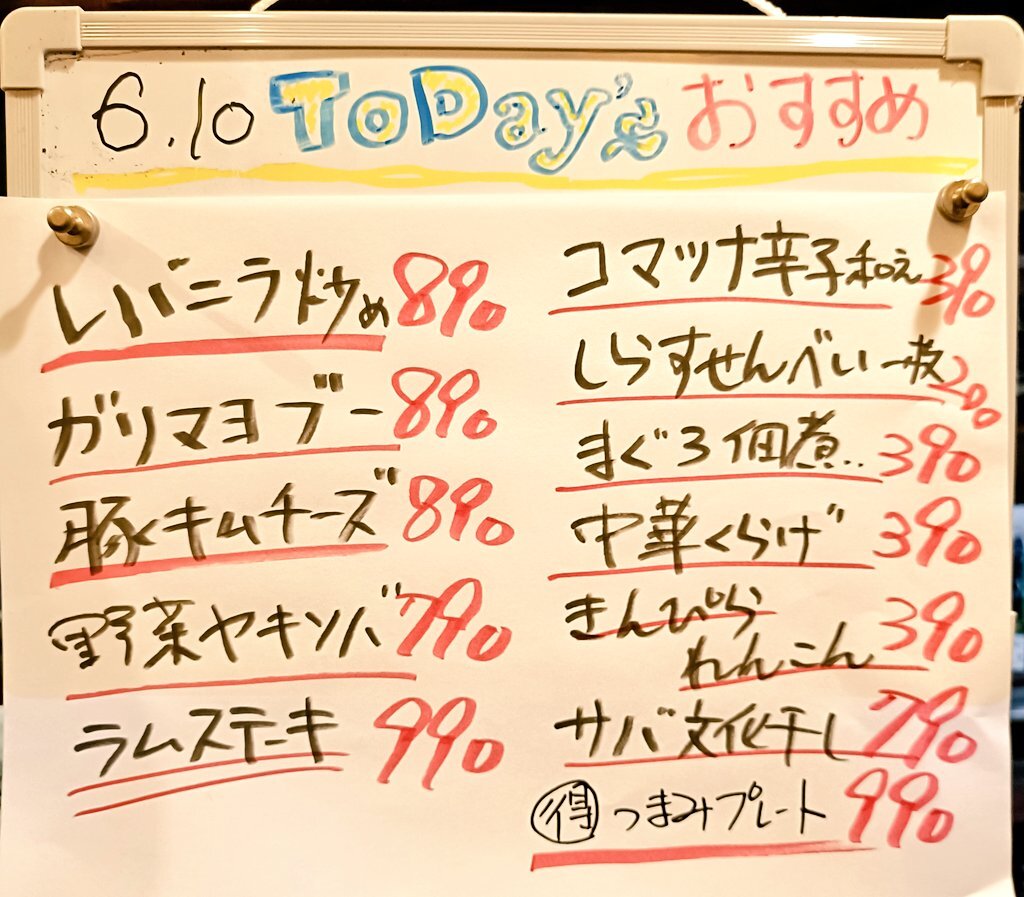 6.10 ToDay's おすすめ
レバニラ炒め 890
ガリマヨブー 890
豚キムチーズ 890
野菜ヤキソバ 790
ラムステーキ 990
コマツナ辛子和え 390
しらすせんべい一枚 200
まぐろ佃煮.. 390
中華くらげ 390
きんぴら
れんこん 390
サバ文化干し 790
得 つまみプレート 990